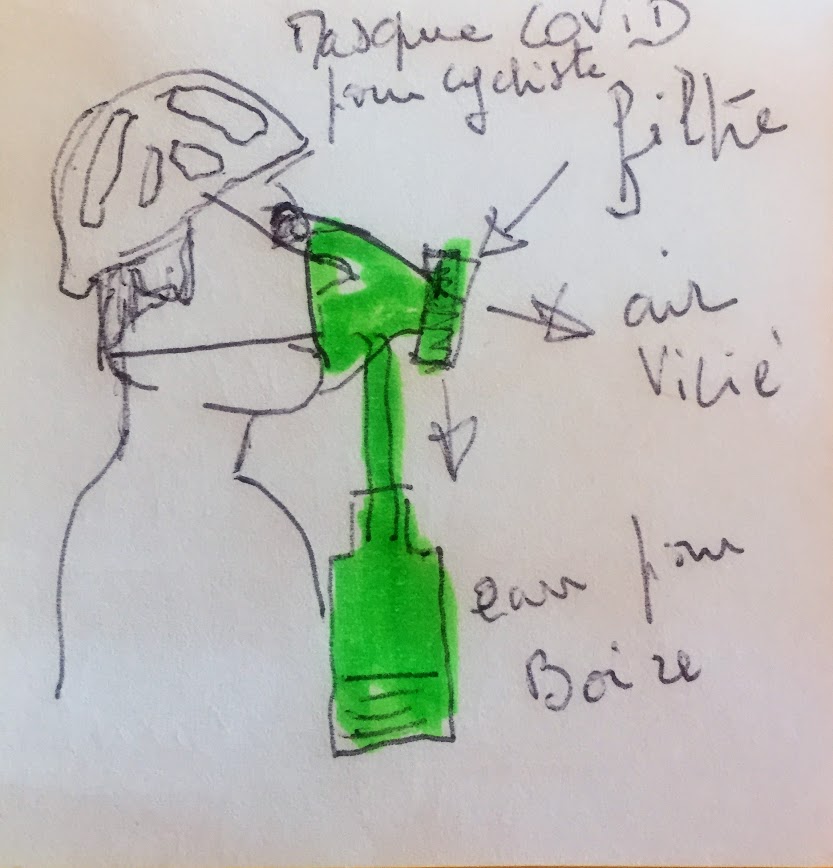 Masque COVID
pour cycliste
filtre
air
Vicié
eau pour
Boire